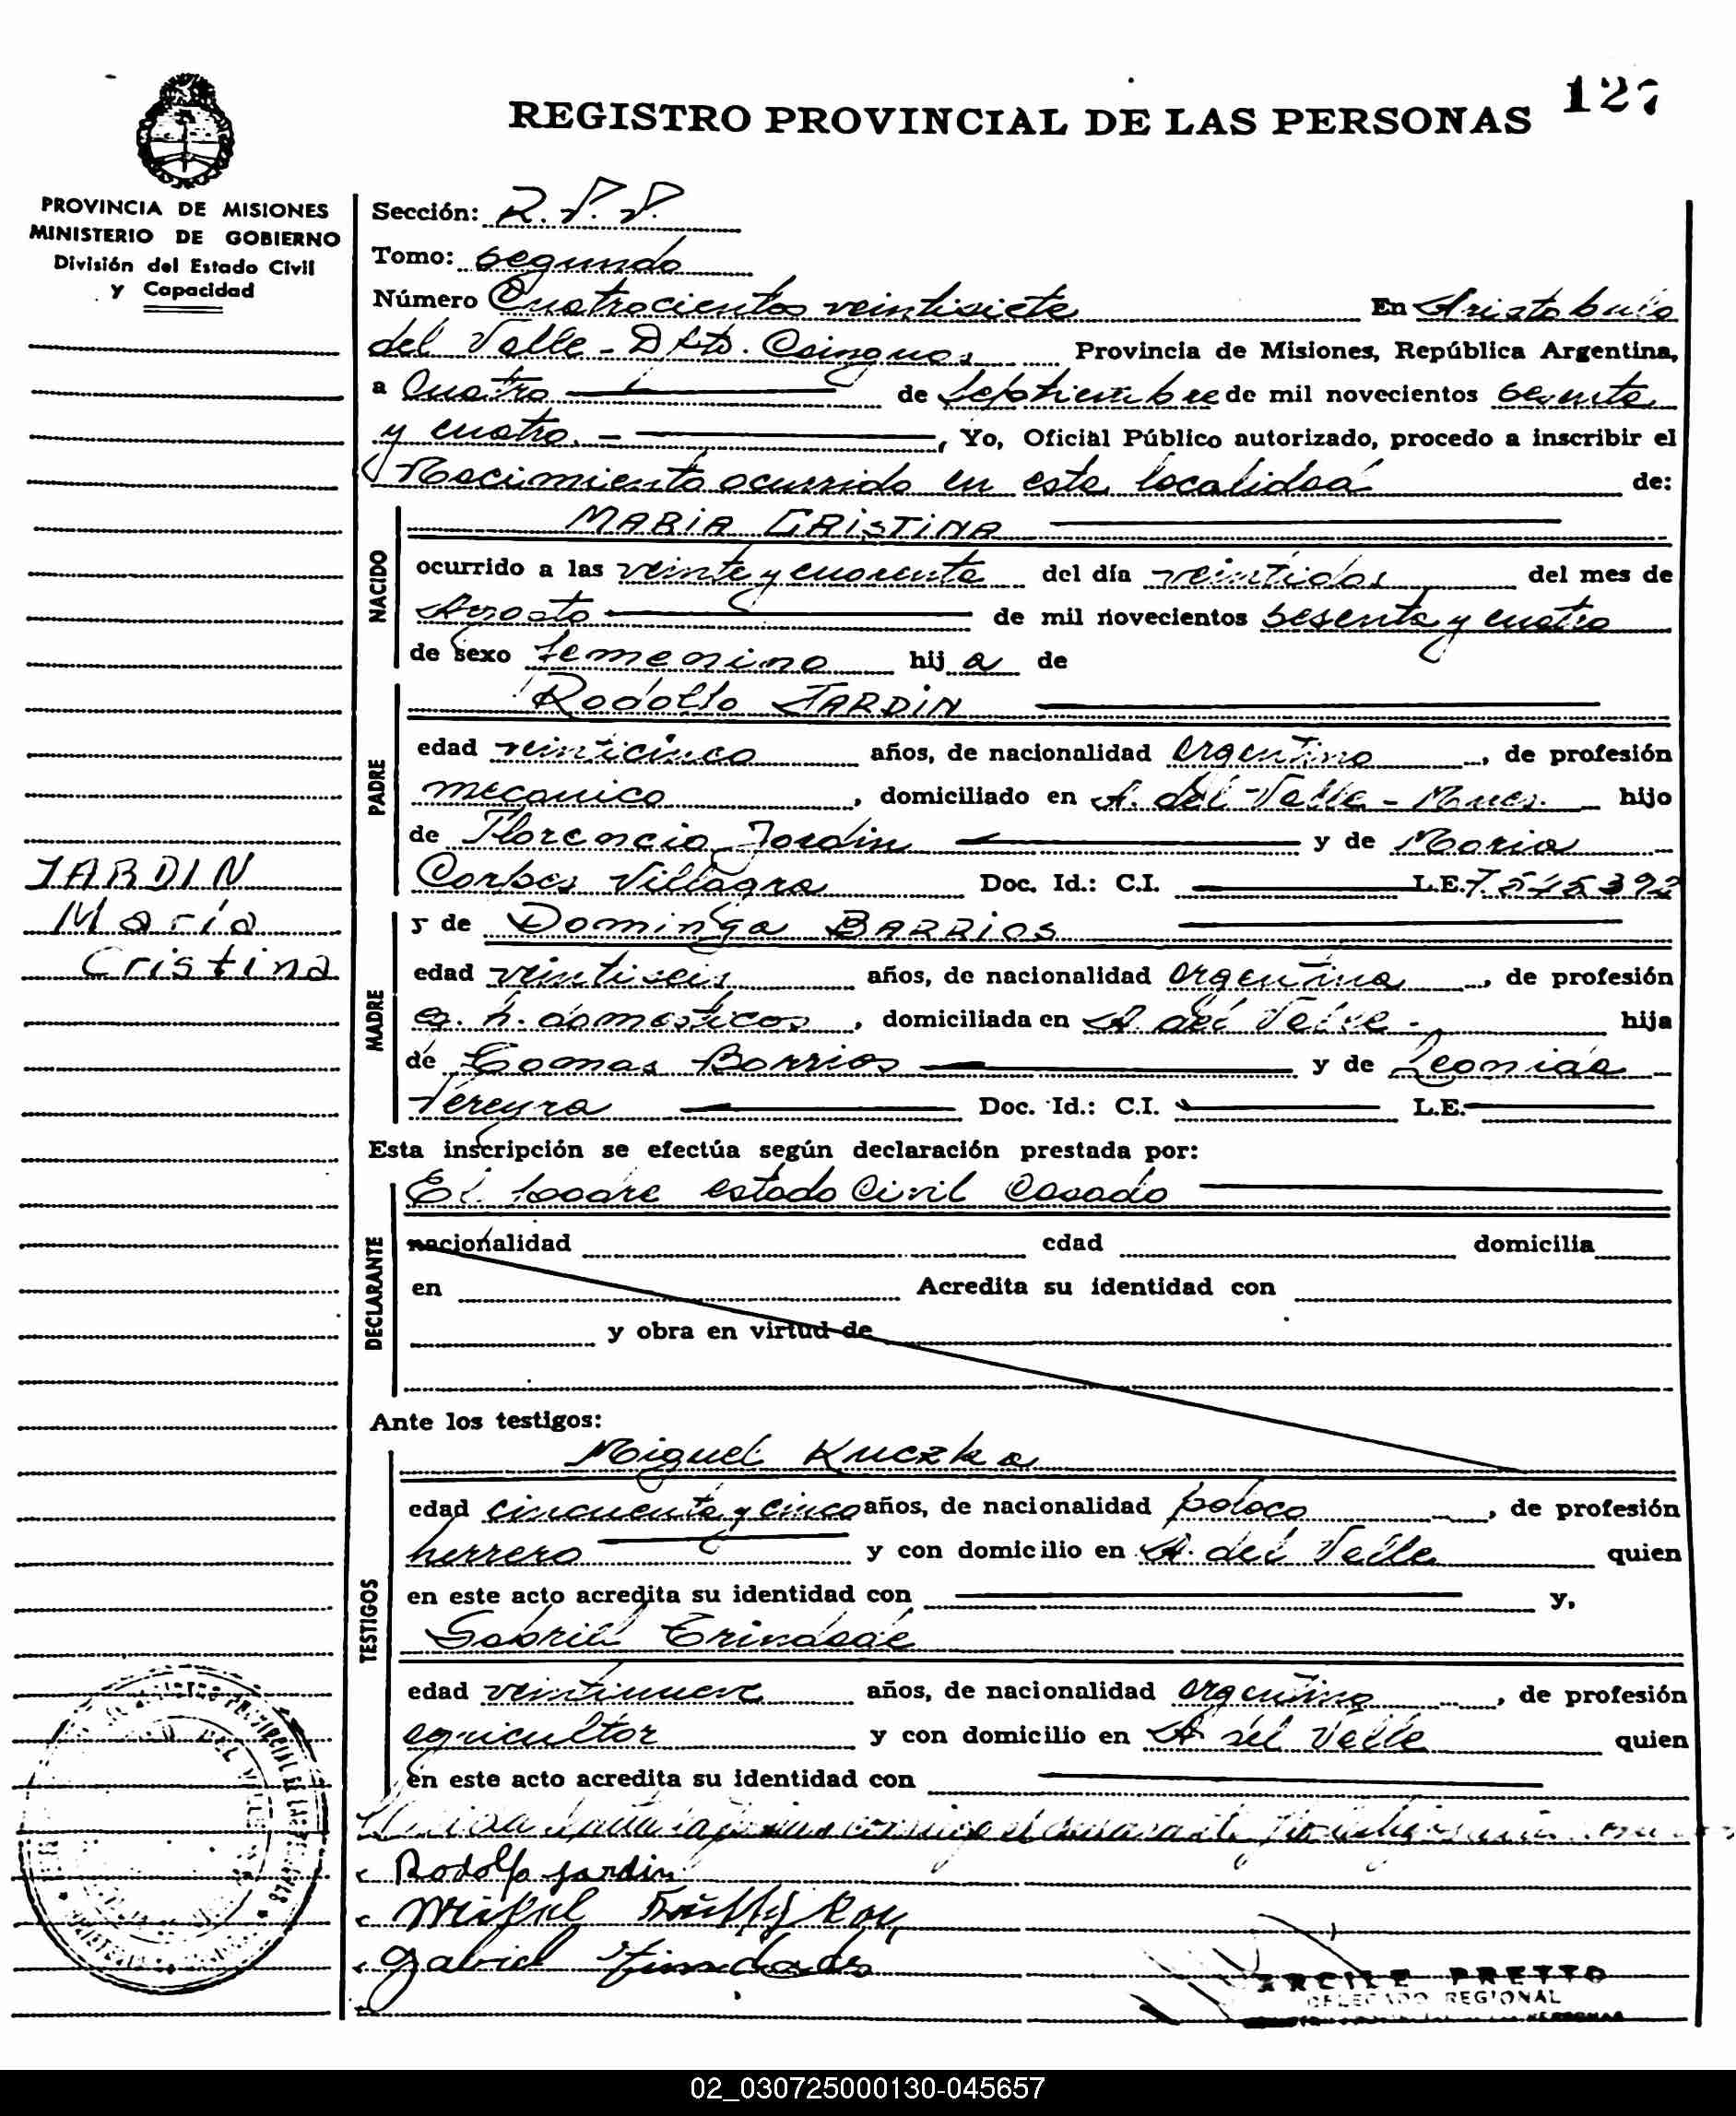 127
REGISTRO PROVINCIAL DE LAS PERSONAS
PROVINCIA DE MISIONES
MINISTERIO DE GOBIERNO
División del Estado Civil
y Capacidad
Sección: R.P.P.
Tomo: segundo
Número Cuatrocientos veintisiete En Aristobulo
del Valle - Dpto. Cainguas Provincia de Misiones, República Argentina,
a Cuatro de septiembre de mil novecientos sesenta
y cuatro. - , Yo, Oficial Público autorizado, procedo a inscribir el
Nacimiento ocurrido en esta localidad de:
NACIDO
MARIA CRISTINA
ocurrido a las veinte y cuarenta del día veintidos del mes de
Agosto de mil novecientos sesenta y cuatro
de sexo femenino hij a de
PADRE
Rodolfo JARDIN
edad veinticinco años, de nacionalidad argentino, de profesión
mecanico, domiciliado en A. del Valle - Mnes. hijo
de Florencio Jardin y de Maria
Villagra Doc. Id.: C.I. L.E. 7.545.392
JARDIN
María
Cristina
MADRE
y de Dominga BARRIOS
edad veintiseis años, de nacionalidad argentina, de profesión
q. h. domesticos, domiciliada en A. del Valle. hija
de Tomas Barrios y de Leonida
Pereyra Doc. Id.: C.I. L.E.
Esta inscripción se efectúa según declaración prestada por:
DECLARANTE
El padre estado Civil Casado
nacionalidad edad domicilia
en Acredita su identidad con
y obra en virtud de
Ante los testigos:
TESTIGOS
Miguel Kuczka
edad cincuenta y cinco años, de nacionalidad polaco, de profesión
herrero y con domicilio en A. del Valle quien
en este acto acredita su identidad con y,
Gabriel Trindade
edad veintinueve años, de nacionalidad argentino, de profesión
agricultor y con domicilio en A del Valle quien
en este acto acredita su identidad con
Rodolfo jardin
gabriel
PRETTO
DELEGADO REGIONAL
02_030725000130-045657